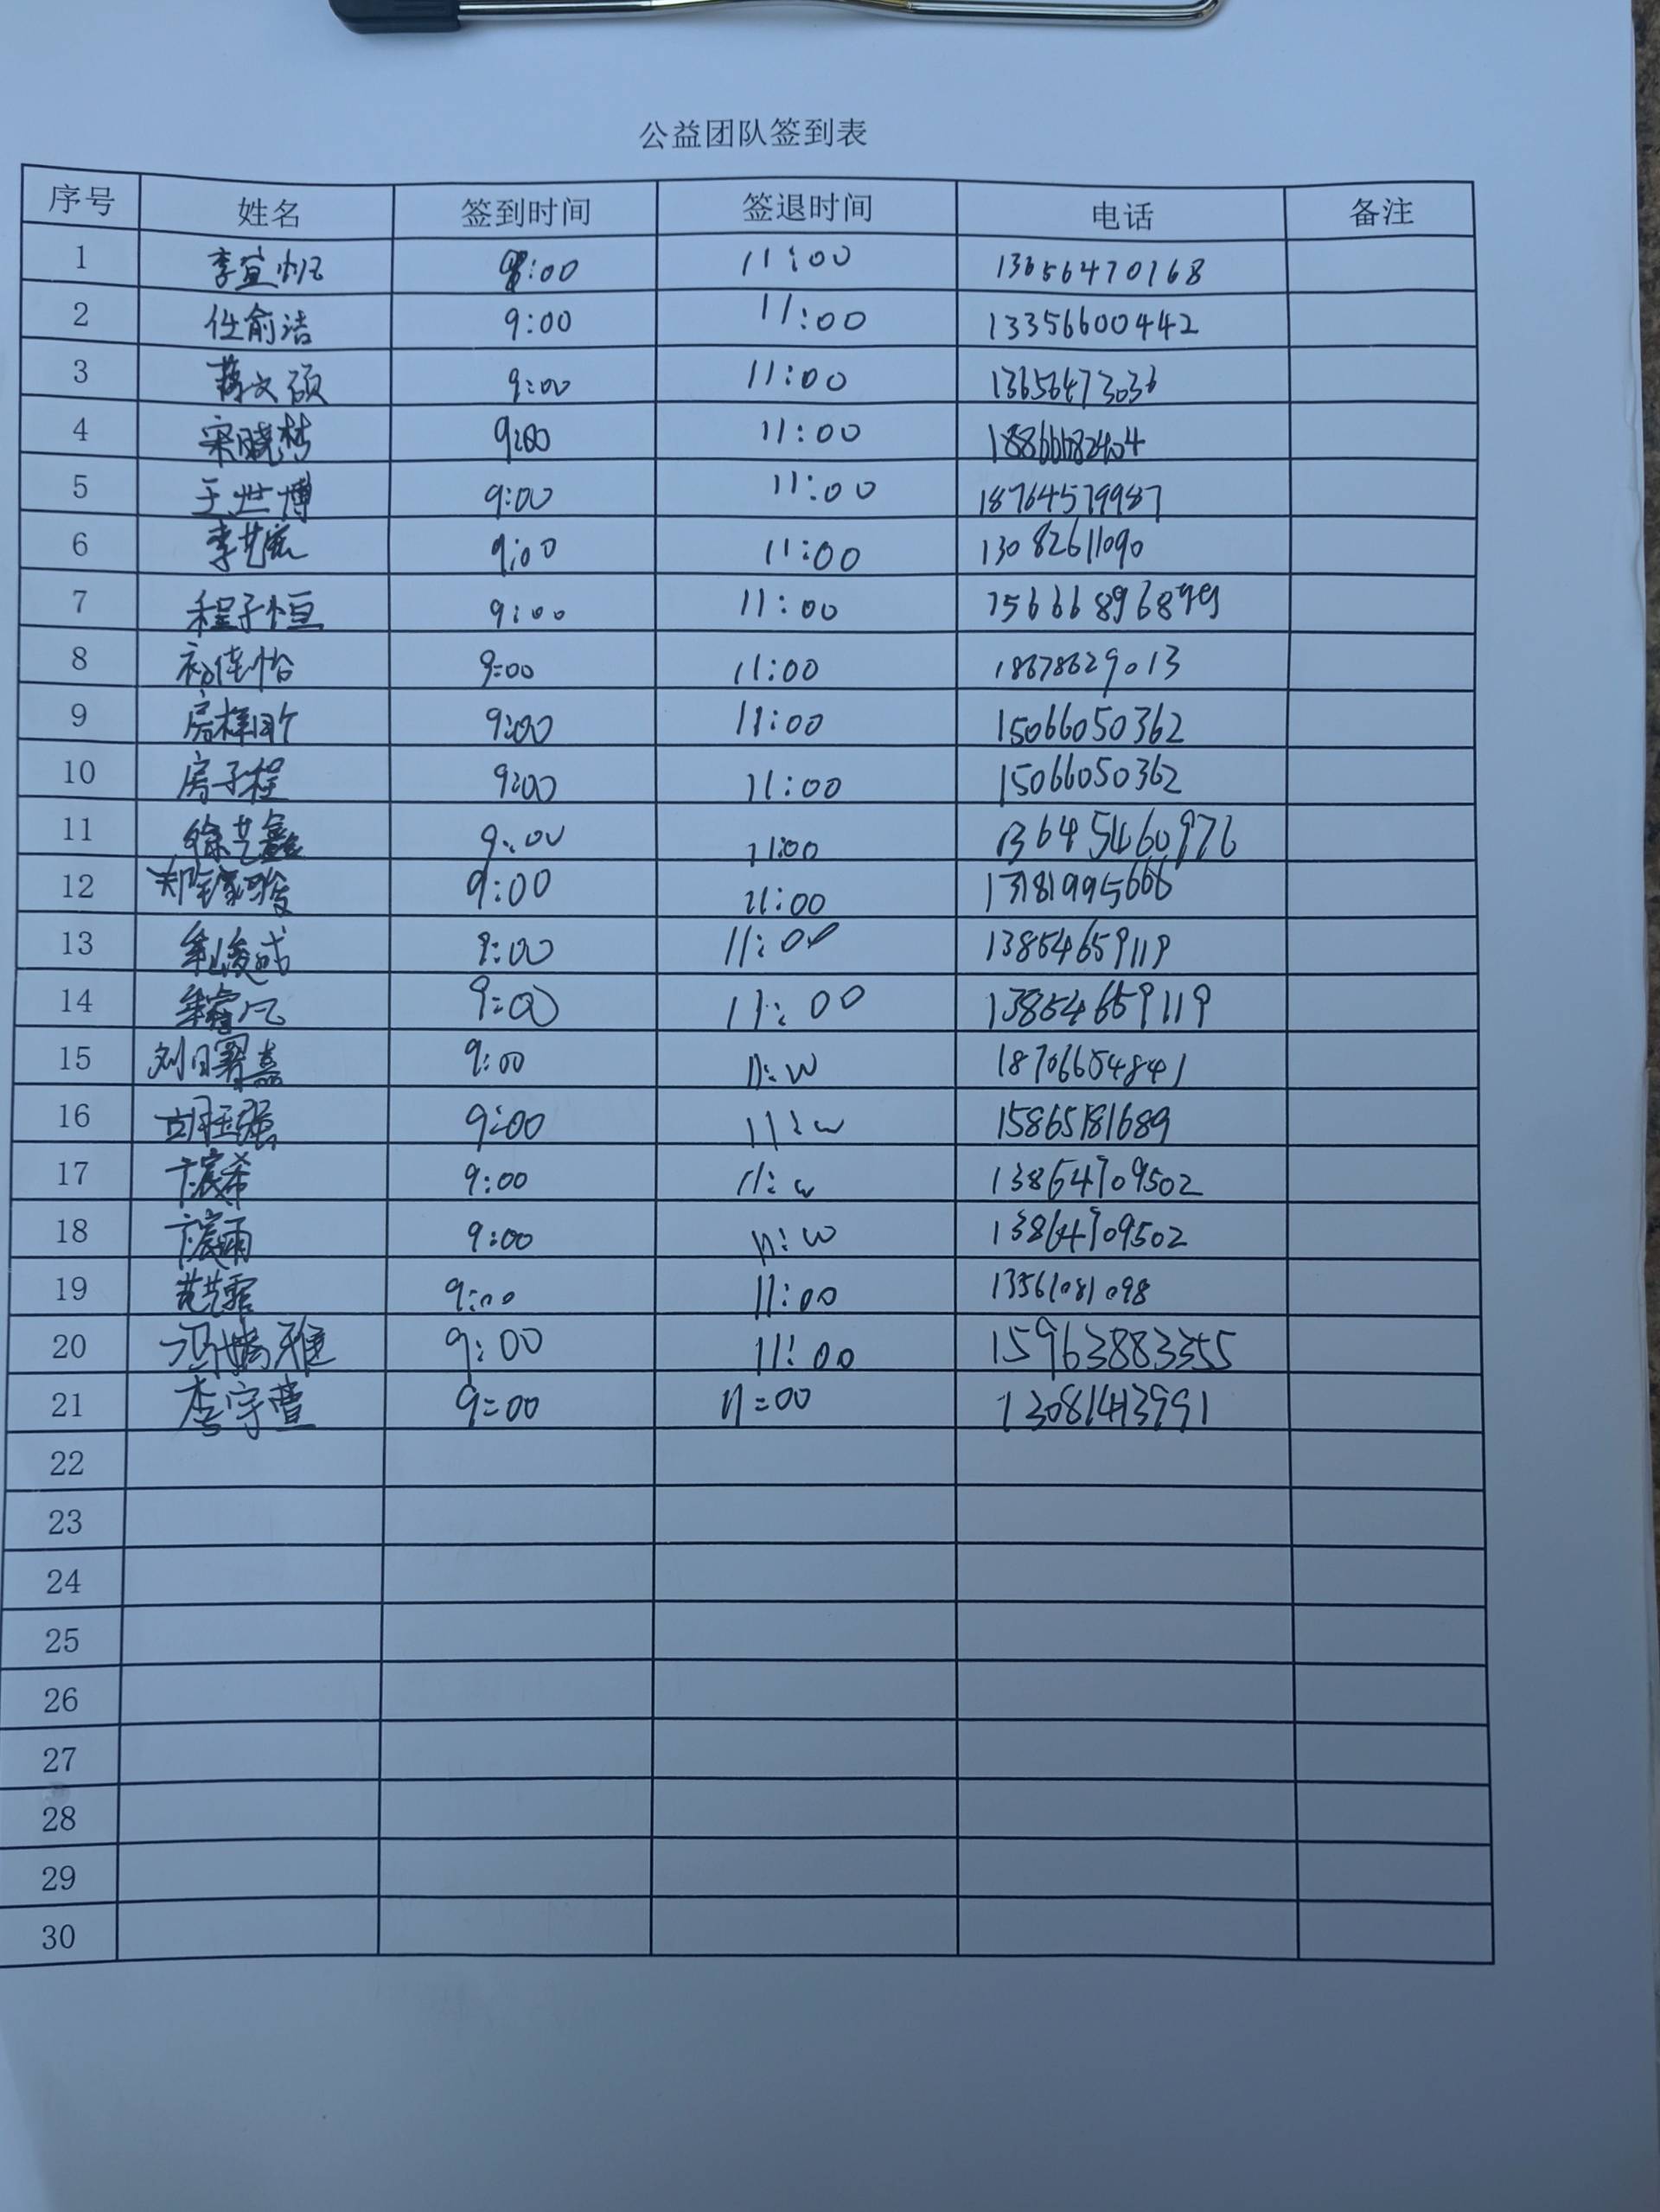 公益团队签到表
序号 姓名 签到时间 签退时间 电话 备注
1 李宣帆 9:00 11:00 13656470168
2 任俞洁 9:00 11:00 13356600442
3 蒋文硕 9:00 11:00 13656473036
4 宋晓梦 9:00 11:00 18866682404
5 于世博 9:00 11:00 18764579987
6 李艺宸 9:00 11:00 13082611090
7 程子恒 9:00 11:00
8 初佳怡 9:00 11:00 18678629013
9 9:00 11:00 15066050362
10 房子程 9:00 11:00 15066050362
11 徐艺鑫 9:00 11:00 13645460976
12 9:00 11:00 13181995666
13 牟俊成 9:00 11:00 13854659119
14 9:00 11:00 13854659119
15 9:00 11:00 18706654841
16 胡玉强 9:00 11:00 15865181689
17 卞宸希 9:00 11:00 13864709502
18 卞宸雨 9:00 11:00 13864709502
19 范艺霏 9:00 11:00 13561081098
20 9:00 11:00 15963883355
21 李宇萱 9=00 11=00 13081413991
22
23
24
25
26
27
28
29
30